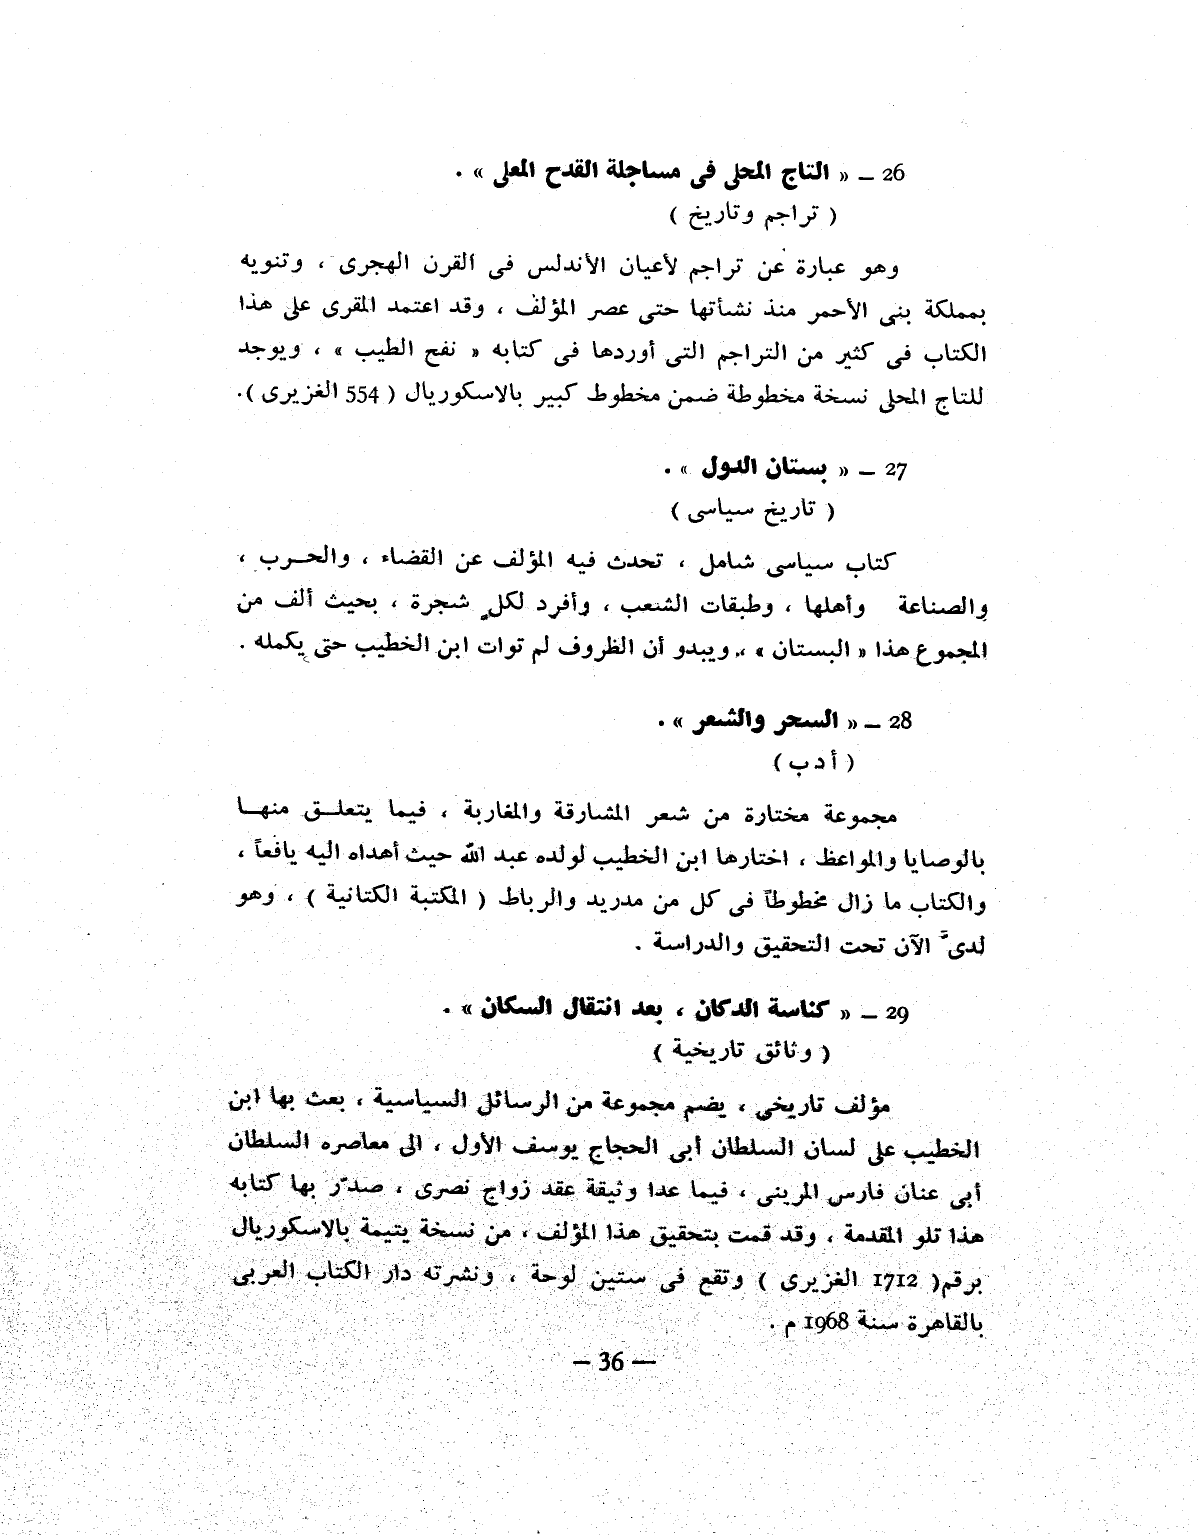 26 ــ « التاج المحلى فى مساجلة القدح المعلى » .
( تراجم وتاريخ )
وهو عبارة عن تراجم لأعيان الأندلس فى القرن الهجرى ، وتنويه
بمملكة بنى الأحمر منذ نشأتها حتى عصر المؤلف ، وقد اعتمد المقرى على هذا
الكتاب فى كثير من التراجم التى أوردها فى كتابه « نفح الطيب » ، ويوجد
للتاج المحلى نسخة مخطوطة ضمن مخطوط كبير بالاسكوريال ( 554 الغزيرى ).
27 ــ « بستان الدول » .
( تاريخ سياسى )
كتاب سياسى شامل ، تحدث فيه المؤلف عن القضاء ، والحــرب ،
والصناعة وأهلها ، وطبقات الشعب ، وأفرد لكل شجرة ، بحيث ألف من
المجموع هذا « البستان » ، ويبدو أن الظروف لم توات ابن الخطيب حتى يكمله .
28 ــ « السحر والشعر » .
( أدب )
مجموعة مختارة من شعر المشارقة والمغاربة ، فيما يتعلــق منهــا
بالوصايا والمواعظ ، اختارها ابن الخطيب لولده عبد الله حيث أهداه اليه يافعاً ،
والكتاب ما زال مخطوطاً فى كل من مدريد والرباط ( المكتبة الكتانية ) ، وهو
لدىَّ الآن تحت التحقيق والدراسة .
29 ــ « كناسة الدكان ، بعد انتقال السكان » .
( وثائق تاريخية )
مؤلف تاريخى ، يضم مجموعة من الرسائل السياسية ، بعث بها ابن
الخطيب على لسان السلطان أبى الحجاج يوسف الأول ، الى معاصره السلطان
أبى عنان فارس المرينى ، فيما عدا وثيقة عقد زواج نصرى ، صدّر بها كتابه
هذا تلو المقدمة ، وقد قمت بتحقيق هذا المؤلف ، من نسخة يتيمة بالاسكوريال
برقم( 1712 الغزيرى ) وتقع فى ستين لوحة ، ونشرته دار الكتاب العربى
بالقاهرة سنة 1968 م .
— 36 —